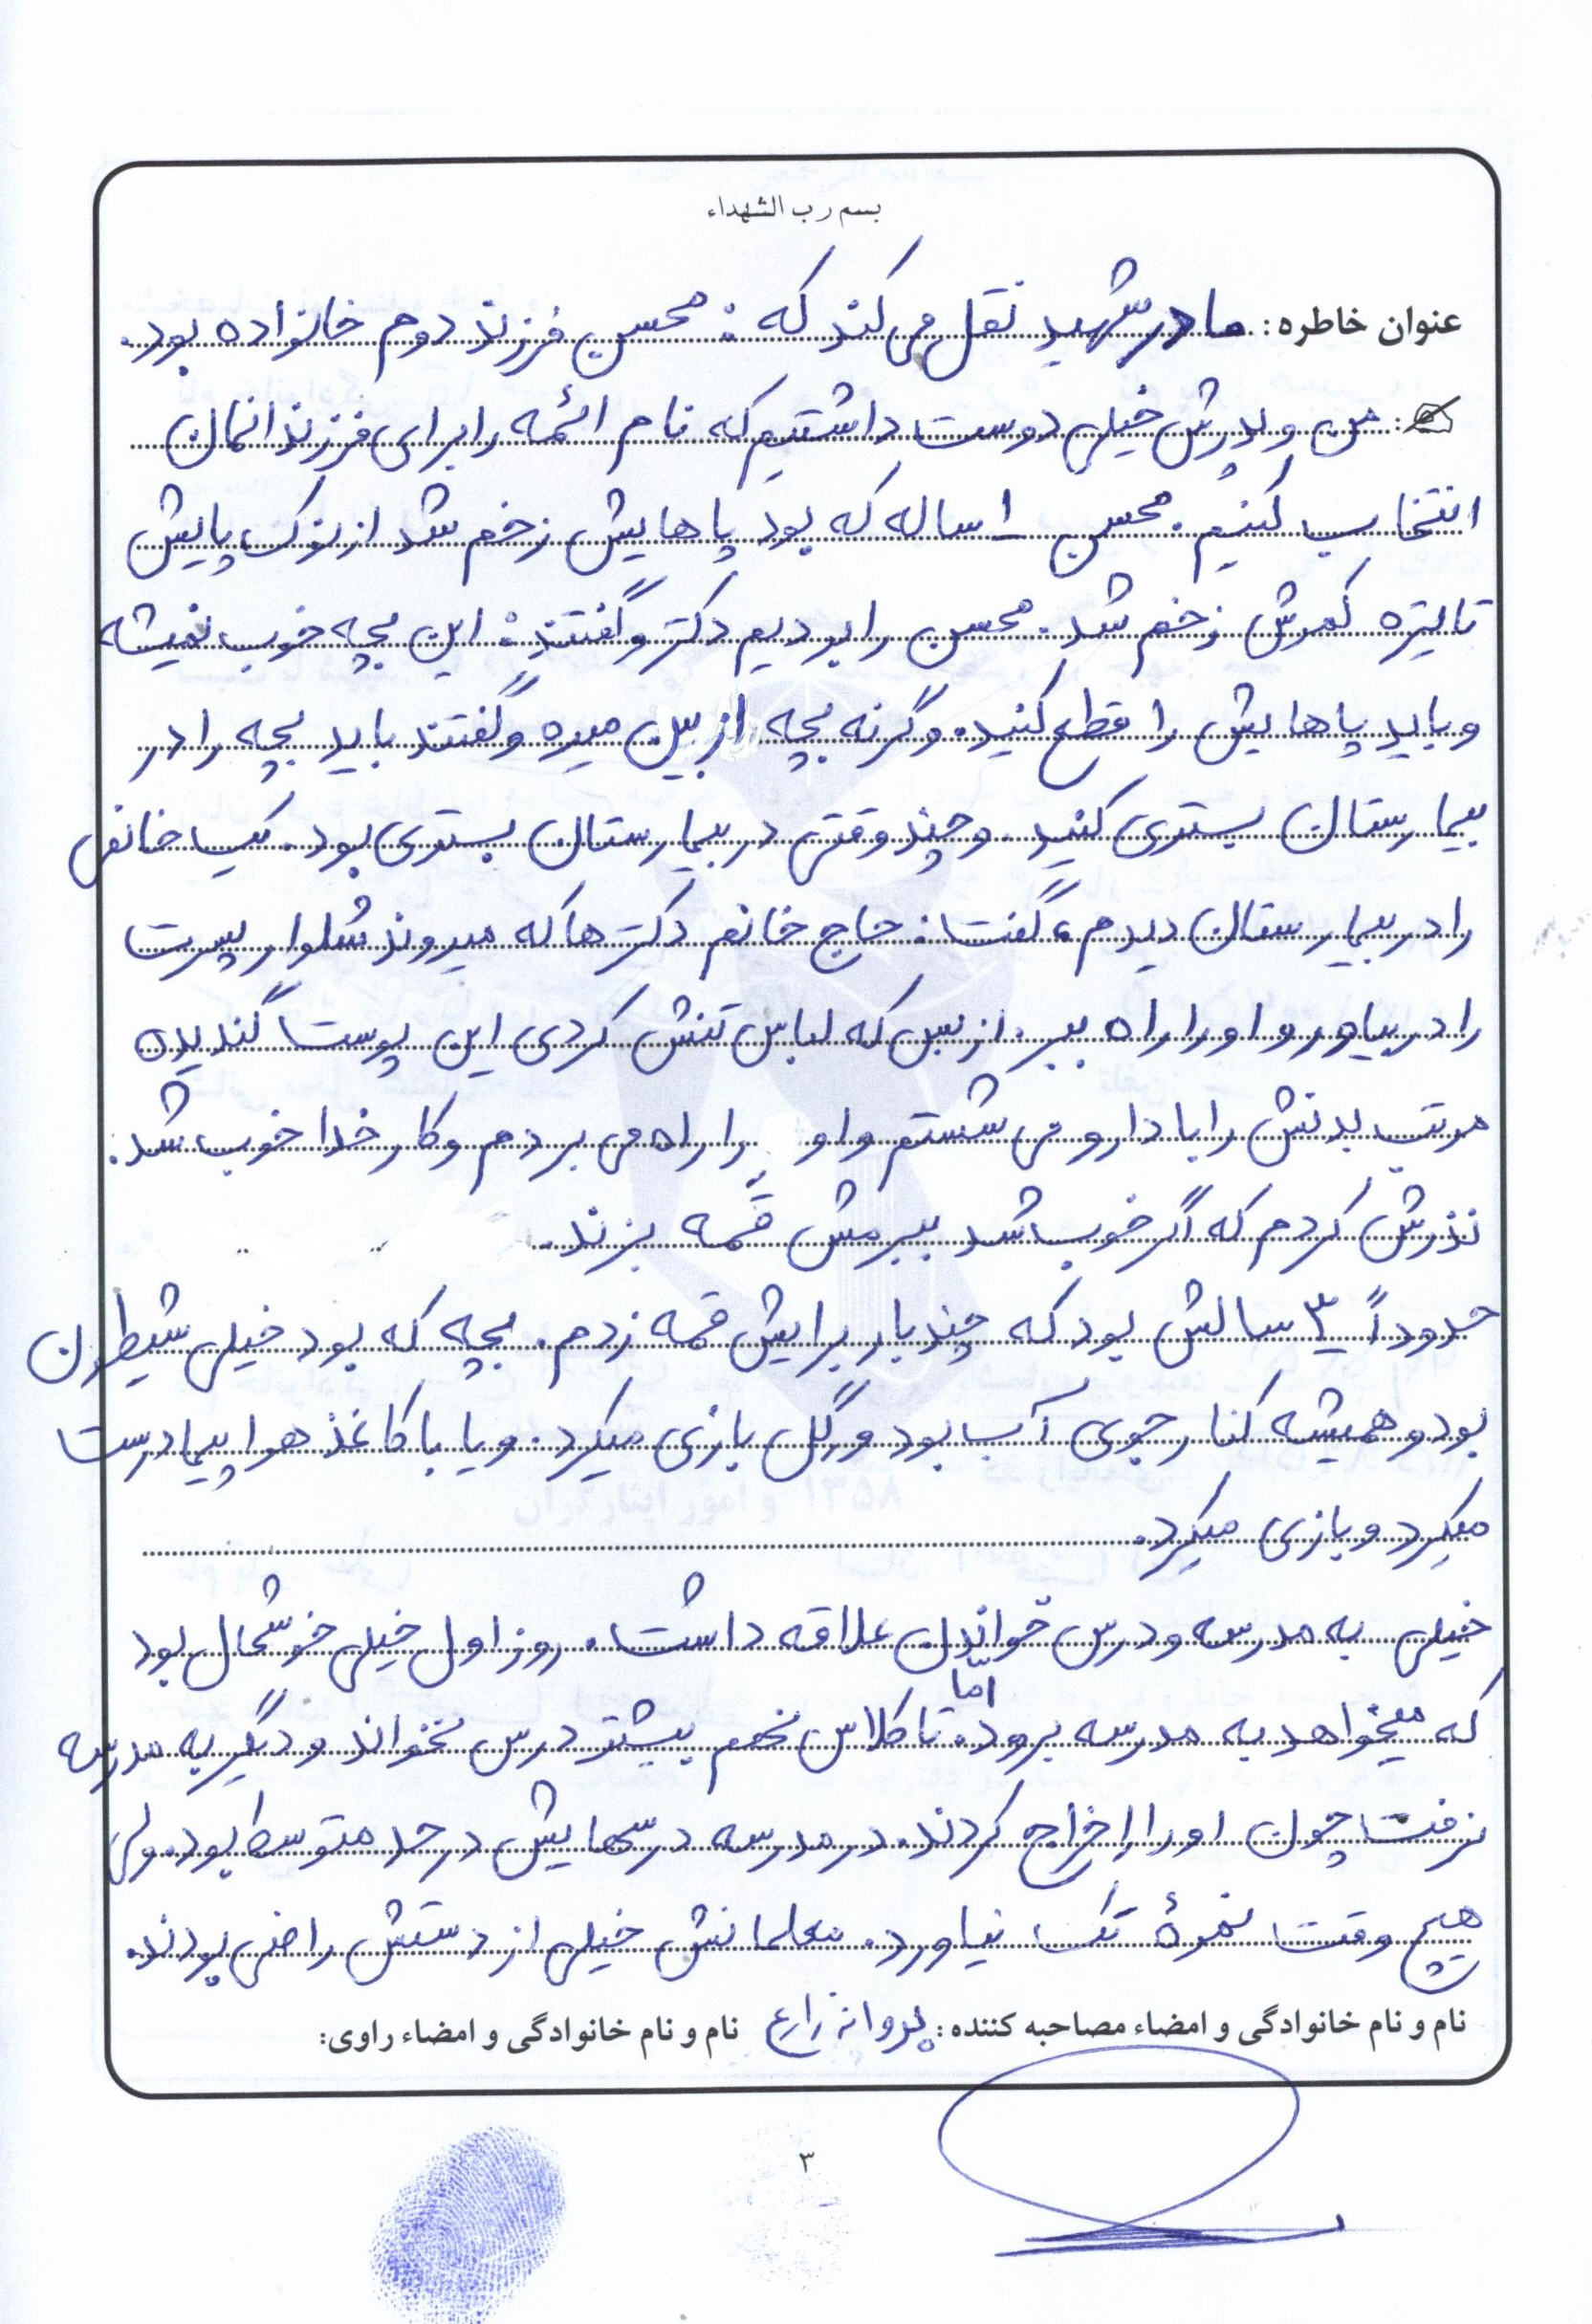 بسم رب الشهداء
عنوان خاطره: مادر شهید نقل می کند که : محسن فرزند دوم خانواده بود.
من و پدرش خیلی دوست داشتیم که نام ائمه را برای فرزندانمان
انتخاب کنیم. محسن ۱ ساله که بود پاهایش زخم شد از نوک پایش
تا تیزه کمرش زخم شد. محسن را بردیم دکتر و گفتند: این بچه خوب نمیشه
و باید پاهایش را قطع کنید. وگرنه بچه از بین میره و گفتند باید بچه را در
بیمارستان بستری کنید. و چند وقتی در بیمارستان بستری بود. یک خانمی
را در بیمارستان دیدم، گفت: حاج خانم دکترها که میروند شلوار پسرت
را در بیاور و او را راه ببر. از بس که لباس تنش کردی این پوست گندیده
مرتب بدنش را با دارو می شستم و او را راه می بردم و کار خدا خوب شد.
نذرش کردم که اگر خوب شد ببرمش قمه بزند.
حدوداً ۳ سالش بود که چند بار برایش قمه زدم. بچه که بود خیلی شیطون
بود و همیشه کنار جوی آب بود و گل بازی میکرد. و یا با کاغذ هواپیما درست
میکرد و بازی میکرد.
خیلی به مدرسه و درس خواندن علاقه داشت. روز اول خیلی خوشحال بود
که میخواهد به مدرسه برود. امّا تا کلاس نهم بیشتر درس نخواند و دیگر به مدرسه
نرفت چون او را اخراج کردند. در مدرسه درسهایش در حد متوسط بود. ولی
هیچ وقت نمرهٔ تک نیاورد. معلمانش خیلی از دستش راضی بودند.
نام و نام خانوادگی و امضاء مصاحبه کننده: پروانه زارع نام و نام خانوادگی و امضاء راوی:
۳